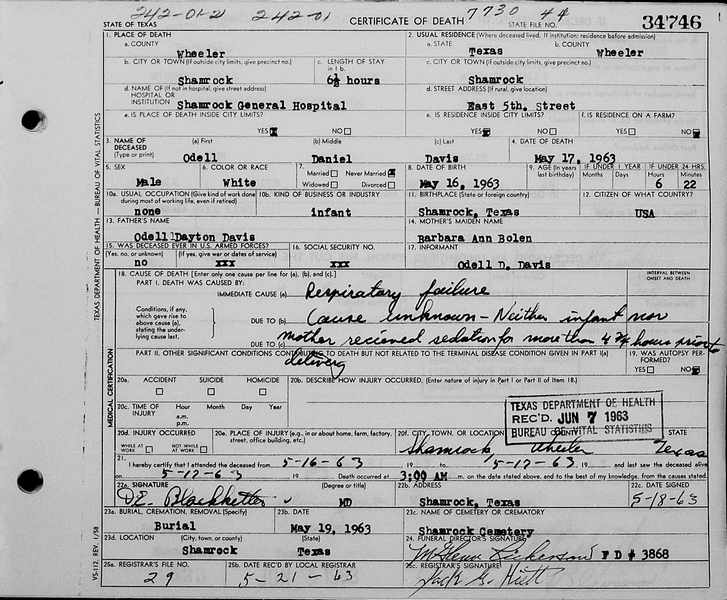 242-01-2 242-01 7730 44
STATE OF TEXAS CERTIFICATE OF DEATH STATE FILE NO. 34746
1. PLACE OF DEATH 2. USUAL RESIDENCE (Where deceased lived. If institution: residence before admission)
a. COUNTY a. STATE b. COUNTY
Wheeler Texas Wheeler
b. CITY OR TOWN (If outside city limits, give precinct no.) c. LENGTH OF STAY in 1 b. c. CITY OR TOWN (If outside city limits, give precinct no.)
Shamrock 6½ hours Shamrock
d. NAME OF (If not in hospital, give street address) HOSPITAL OR INSTITUTION d. STREET ADDRESS (If rural, give location)
Shamrock General Hospital East 5th. Street
e. IS PLACE OF DEATH INSIDE CITY LIMITS? e. IS RESIDENCE INSIDE CITY LIMITS? f. IS RESIDENCE ON A FARM?
YES NO YES NO YES NO
3. NAME OF DECEASED (Type or print) (a) First (b) Middle (c) Last 4. DATE OF DEATH
Odell Daniel Davis May 17, 1963
5. SEX 6. COLOR OR RACE 7. Married Never Married Widowed Divorced 8. DATE OF BIRTH 9. AGE (In years last birthday) IF UNDER 1 YEAR Months Days IF UNDER 24 HRS. Hours Min.
Male White May 16, 1963 6 22
10a. USUAL OCCUPATION (Give kind of work done during most of working life, even if retired) 10b. KIND OF BUSINESS OR INDUSTRY 11. BIRTHPLACE (State or foreign country) 12. CITIZEN OF WHAT COUNTRY?
none infant Shamrock, Texas USA
13. FATHER'S NAME 14. MOTHER'S MAIDEN NAME
Odell Dayton Davis Barbara Ann Bolen
15. WAS DECEASED EVER IN U.S. ARMED FORCES? 16. SOCIAL SECURITY NO. 17. INFORMANT
(Yes, no, or unknown) (If yes, give war or dates of service)
no xxx xxx Odell D. Davis
18. CAUSE OF DEATH [Enter only one cause per line for (a), (b), and (c).] INTERVAL BETWEEN ONSET AND DEATH
PART I. DEATH WAS CAUSED BY:
IMMEDIATE CAUSE (a) Respiratory failure
Conditions, if any, which gave rise to above cause (a), stating the underlying cause last.
DUE TO (b) Cause unknown - Neither infant nor
DUE TO (c) mother recieved sedation for more than 4 hours prior to
delivery
PART II. OTHER SIGNIFICANT CONDITIONS CONTRIBUTING TO DEATH BUT NOT RELATED TO THE TERMINAL DISEASE CONDITION GIVEN IN PART I(a) 19. WAS AUTOPSY PERFORMED?
YES NO
20a. ACCIDENT SUICIDE HOMICIDE 20b. DESCRIBE HOW INJURY OCCURRED. (Enter nature of injury in Part I or Part II of item 18.)
20c. TIME OF INJURY Hour Month Day Year
a.m.
p.m.
TEXAS DEPARTMENT OF HEALTH
REC'D. JUN 7 1963
BUREAU OF VITAL STATISTICS
20d. INJURY OCCURRED 20e. PLACE OF INJURY (e.g., in or about home, farm, factory, street, office building, etc.) 20f. CITY, TOWN, OR LOCATION COUNTY STATE
WHILE AT WORK NOT WHILE AT WORK Shamrock Wheeler Texas
21. I hereby certify that I attended the deceased from 5-16-63 19 to 5-17-63, 19 and last saw the deceased alive
on 5-17-63 19 Death occurred at 3:00 AM m. on the date stated above, and to the best of my knowledge, from the causes stated.
22a. SIGNATURE (Degree or title) 22b. ADDRESS 22c. DATE SIGNED
D.E. Blackketter MD Shamrock, Texas 5-18-63
23a. BURIAL, CREMATION, REMOVAL (Specify) 23b. DATE 23c. NAME OF CEMETERY OR CREMATORY
Burial May 19, 1963 Shamrock Cemetery
23d. LOCATION (City, town, or county) (State) 24. FUNERAL DIRECTOR'S SIGNATURE
Shamrock Texas Glenn F D # 3868
25a. REGISTRAR'S FILE NO. 25b. DATE REC'D BY LOCAL REGISTRAR 25c. REGISTRAR'S SIGNATURE
29 5-21-63 Jack G. Hiett
TEXAS DEPARTMENT OF HEALTH — BUREAU OF VITAL STATISTICS
MEDICAL CERTIFICATION
VS-112, REV. 1/58